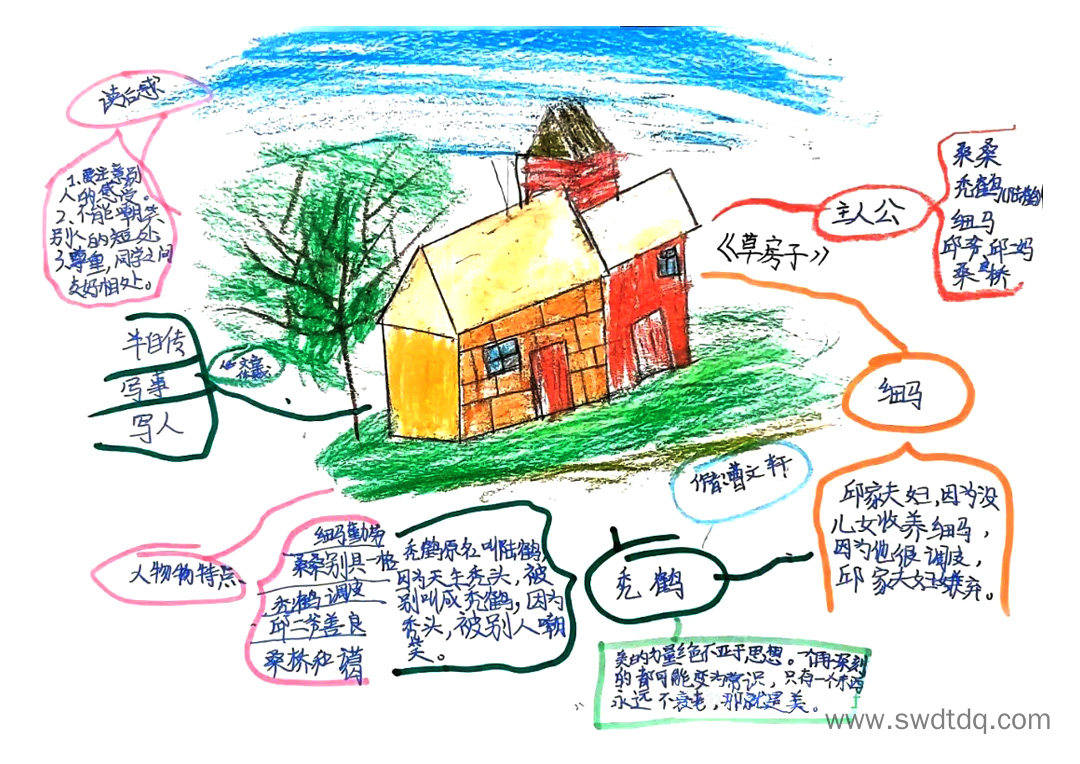 读后感
1.要注意别
人的感受。
2.不能嘲笑
别人的短处
3.尊重,同学之间
友好相处。
半自传
写事
写人
《草房子》
主人公
桑桑
秃鹤(陆鹤)
细马
邱二爷,邱二妈
桑桥
细马
邱家夫妇,因为没
儿女收养细马,
因为他很调皮,
邱家夫妇嫌弃。
作者:曹文轩
人物物特点
细马勤劳
桑桑别具一格
秃鹤调皮
邱二爷善良
桑桥和蔼
秃鹤原名叫陆鹤,
因为天生秃头,被
别叫成秃鹤,因为
秃头,被别人嘲
笑。
秃鹤
美的力量绝不亚于思想。再深刻
的都可能变为常识,只有一个东西
永远不衰老,那就是美。
www.swdtdq.com